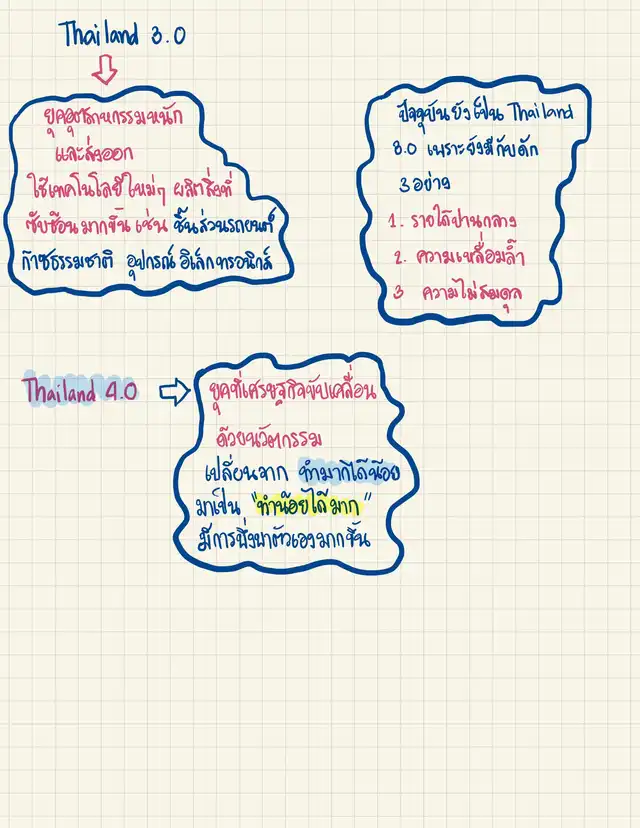 Thailand 3.0
ยุคอุตสาหกรรมหนัก
และส่งออก
ใช้เทคโนโลยีใหม่ๆ ผลิตสิ่งที่
ซับซ้อนมากขึ้น เช่น ชิ้นส่วนรถยนต์
ก๊าซธรรมชาติ อุปกรณ์อิเล็กทรอนิกส์
ปัจจุบันยังเป็น Thailand
3.0 เพราะยังมีกับดัก
3 อย่าง
1. รายได้ปานกลาง
2. ความเหลื่อมล้ำ
3 ความไม่สมดุล
Thailand 4.0
ยุคที่เศรษฐกิจขับเคลื่อน
ด้วยนวัตกรรม
เปลี่ยนจาก ทำมากได้น้อย
มาเป็น "ทำน้อยได้มาก"
มีการพึ่งพาตัวเองมากขึ้น